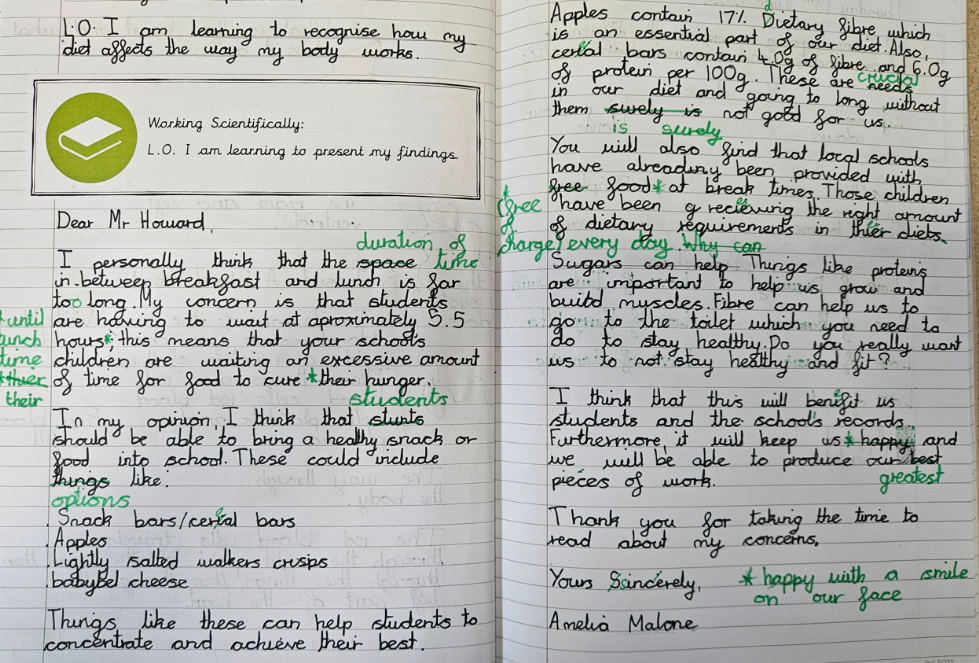 L.O. I am learning to recognise how my
diet affects the way my body works.
Working Scientifically:
L.O. I am learning to present my findings.
Dear Mr Howard,
duration of
I personally think that the space time
in-between breakfast and lunch is far
too long. My concern is that students
are having to wait at aproximately 5.5
*until lunch time
hours* this means that your school's
children are waiting an excessive amount
of time for food to cure *their hunger.
*thier
their
students
In my opinion I think that stunts
should be able to bring a healthy snack or
food into school. These could include
things like.
options
Snack bars/cerial bars
Apples
Lightly salted walkers crisps
babybel cheese
Things like these can help students to
concentrate and achieve their best.
Apples contain 17% Dietary fibre which
is an essential part of our diet. Also,
cerial bars contain 4.0g of fibre and 6.0g
of protein per 100g. These are needs
crucial
in our diet and going to long without
them surely is not good for us.
is surely
You will also find that local schools
have alreaduny been provided with
free food* at break times. Those children
*(free of charge) every day. Why can
have been g recieving the right amount
of dietary requirements in thier diets.
Sugars can help Things like proteins
are important to help us grow and
build muscles. Fibre can help us to
go to the toilet which you need to
do to stay healthy. Do you really want
us to not stay healthy and fit?
I think that this will benifit us
students and the school's records.
Furthermore, it will keep us * happy and
we will be able to produce our best
greatest
pieces of work.
Thank you for taking the time to
read about my concerns.
Yours Sincerely,
* happy with a smile
on our face
Amelia Malone